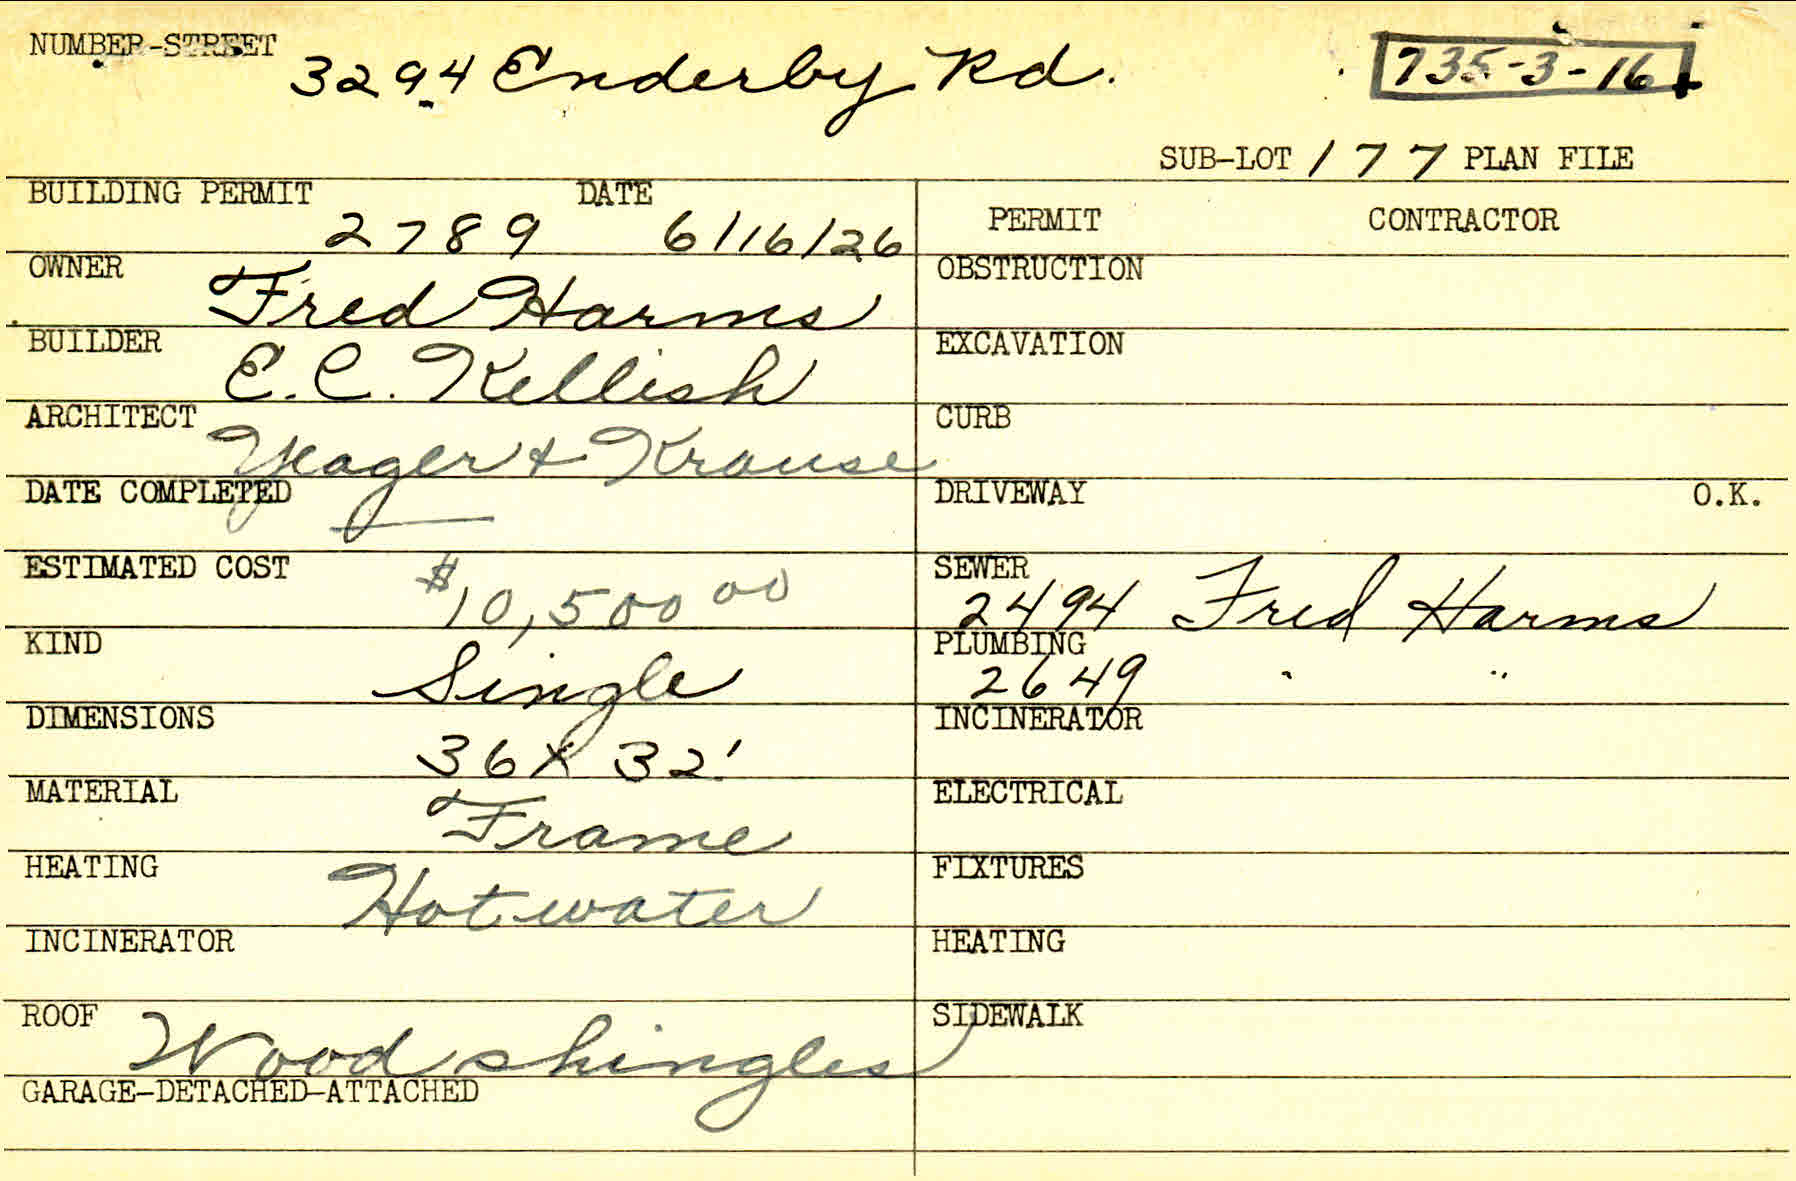 NUMBER-STREET 3294 Enderby Rd. 735-3-16
SUB-LOT 177 PLAN FILE
BUILDING PERMIT 2789 DATE 6/16/26
PERMIT CONTRACTOR
OWNER Fred Harms
OBSTRUCTION
BUILDER E.C. Kellish
EXCAVATION
ARCHITECT Yeager + Krause
CURB
DATE COMPLETED —
DRIVEWAY O.K.
ESTIMATED COST $10,500 00
SEWER 2494 Fred Harms
KIND Single
PLUMBING 2649 " "
DIMENSIONS 36 X 32'
INCINERATOR
MATERIAL Frame
ELECTRICAL
HEATING Hot water
FIXTURES
INCINERATOR
HEATING
ROOF Wood shingles
SIDEWALK
GARAGE-DETACHED-ATTACHED